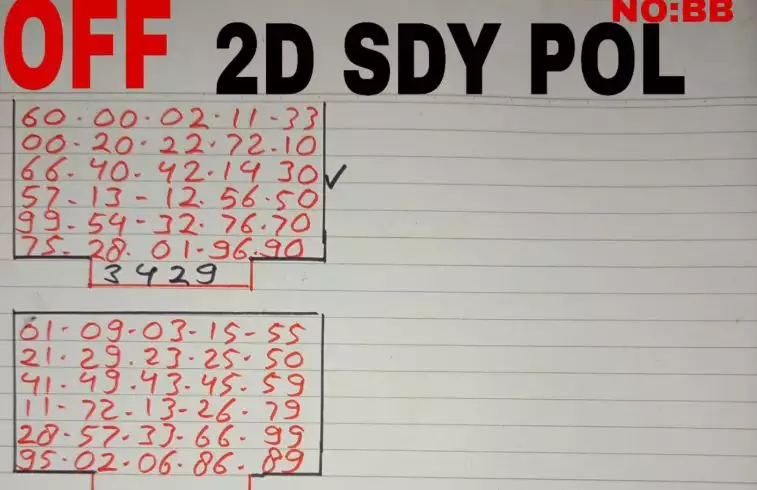 NO:BB
OFF 2D SDY POL
60.00.02.11-33
00-20.22.72.10
66.40.42.14 30 ✓
57.13-12.56.50
99-54-32.76.70
75-28.01-96.90
3429
01.09.03-15-55
21.29.23.25.50
41.49.43.45.59
11-72.13-26.79
28.57.33.66.99
95.02.06.86.89